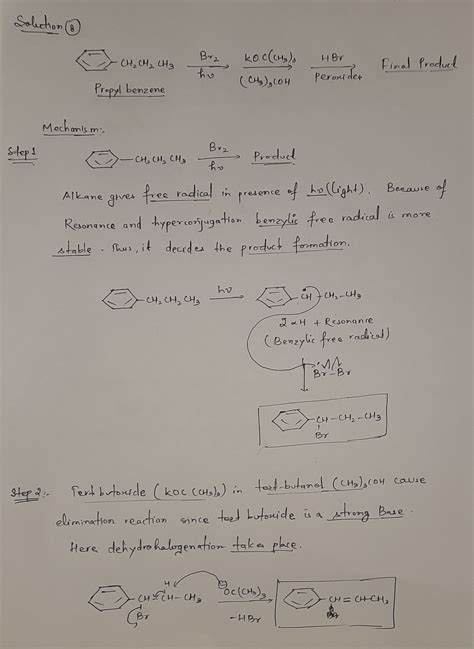 Solution 8
-CH₂CH₂CH₃ Br₂ hν KOC(CH₃)₃ (CH₃)₃COH HBr peroxides Final Product
Propyl benzene
Mechanism:-
Step 1
-CH₂CH₂CH₃ Br₂ hν Product
Alkane gives free radical in presence of hν (light). Because of
Resonance and hyperconjugation benzylic free radical is more
stable. Thus, it decides the product formation.
-CH₂CH₂CH₃ hν -CH-CH₂-CH₃
2αH + Resonance
(Benzylic free radical)
Br-Br
-CH-CH₂-CH₃
Br
Step 2:- Tert butoxide (KOC(CH₃)₃) in tert-butanol (CH₃)₃COH cause
elimination reaction since tert butoxide is a strong Base.
Here dehydrohalogenation takes place.
H
-CH-CH-CH₃ ⊖OC(CH₃)₃ -CH=CH-CH₃
Br -HBr